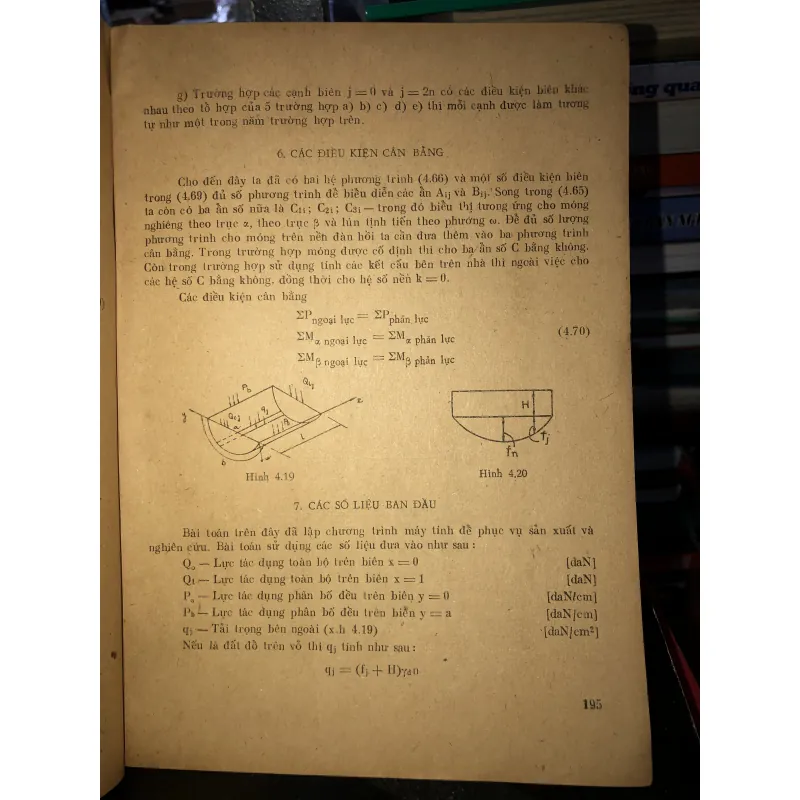 g) Trường hợp các cạnh biên j = 0 và j = 2n có các điều kiện biên khác
nhau theo tổ hợp của 5 trường hợp a) b) c) d) e) thì mỗi cạnh được làm tương
tự như một trong năm trường hợp trên.
6. CÁC ĐIỀU KIỆN CÂN BẰNG
Cho đến đây ta đã có hai hệ phương trình (4.66) và một số điều kiện biên
trong (4.69) đủ số phương trình để biểu diễn các ẩn Aij và Bij. Song trong (4.65)
ta còn có ba ẩn số nữa là C1i; C2i; C3i — trong đó biểu thị tương ứng cho móng
nghiêng theo trục α, theo trục β và lún tịnh tiến theo phương ω. Để đủ số lượng
phương trình cho móng trên nền đàn hồi ta cần đưa thêm vào ba phương trình
cân bằng. Trong trường hợp móng được cố định thì cho ba ẩn số C bằng không.
Còn trong trường hợp sử dụng tính các kết cấu bên trên nhà thì ngoài việc cho
các hệ số C bằng không, đồng thời cho hệ số nền k = 0.
Các điều kiện cân bằng
ΣP ngoại lực = ΣP phản lực
ΣMα ngoại lực = ΣMα phản lực
(4.70)
ΣMβ ngoại lực = ΣMβ phản lực
Hình 4.19
Hình 4.20
H
fn
fj
7. CÁC SỐ LIỆU BAN ĐẦU
Bài toán trên đây đã lập chương trình máy tính để phục vụ sản xuất và
nghiên cứu. Bài toán sử dụng các số liệu đưa vào như sau:
Qo — Lực tác dụng toàn bộ trên biên x = 0 [daN]
Ql — Lực tác dụng toàn bộ trên biên x = 1 [daN]
Po — Lực tác dụng phân bố đều trên biên y = 0 [daN/cm]
Pb — Lực tác dụng phân bố đều trên biên y = a [daN/cm]
qj — Tải trọng bên ngoài (x.h 4.19) [daN/cm²]
Nếu là đất đổ trên vỏ thì qj tính như sau:
qj = (fj + H)γđn
195